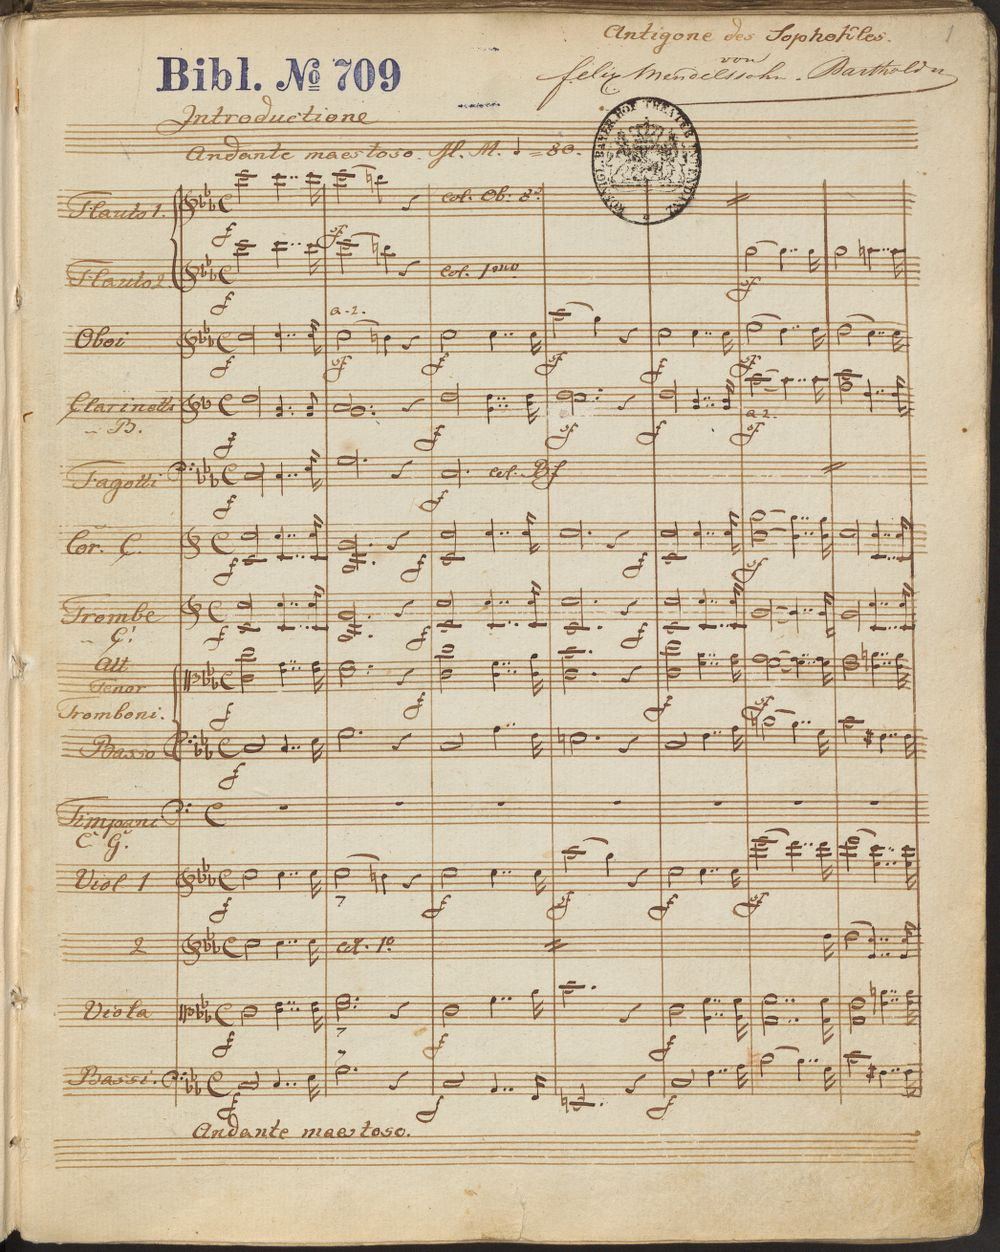 Antigone des Sophokles.
1
von
Felix Mendelssohn-Bartholdy
Bibl. No 709
Introductione
Andante maestoso. M. M. =80.
Flauto 1.
col. Ob. 8va
Flauto 2.
col. 1mo
Oboi
a-2.
Clarinetti
B.
a 2.
Fagotti
col. Bs
Cor. C.
Trombe
C.
Alt
Tenor
Tromboni.
Basso
Timpani
C G.
Viol 1
2
col. 1o
Viola
Bassi.
Andante maestoso.